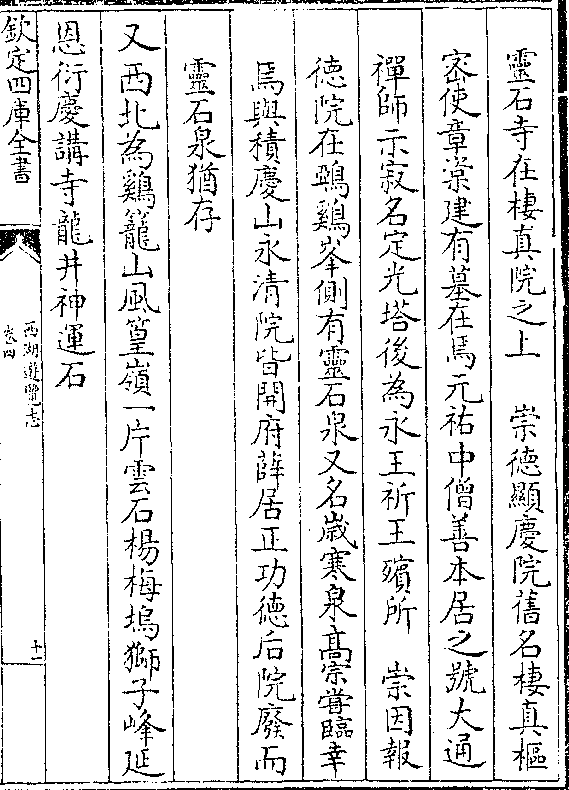 靈石寺在棲真院之上　崇德顯慶院舊名棲真樞
宻使章楶建有墓在焉元祐中僧善本居之號大通
禪師示寂名定光塔後為永王祈王殯所　崇因報
德院在鵶鷄峯側有靈石泉又名嵗寒泉髙宗嘗臨幸
焉與積慶山永清院皆開府薛居正功德后院廢而
靈石泉猶存
又西北為鷄籠山風篁嶺一片雲石楊梅塢獅子峰延
恩衍慶講寺龍井神運石
欽定四庫全書
西湖遊覽志
卷四
十一